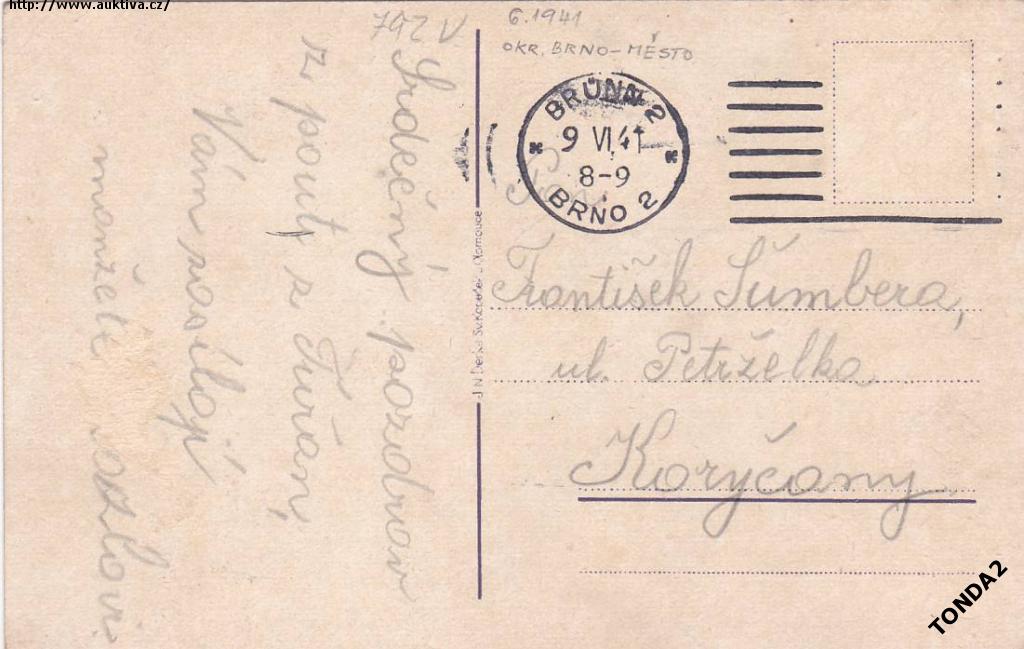 http://www.auktiva.cz/
792 V
6.1941
OKR. BRNO-MĚSTO
BRÜNN 2
9 VI 41
8-9
BRNO 2
Srdečný pozdrav
z pouty z Tuřan,
Vám zasílají
manželé
Pan
František Šumbera,
ul. Petrželka
Koryčany
TONDA2